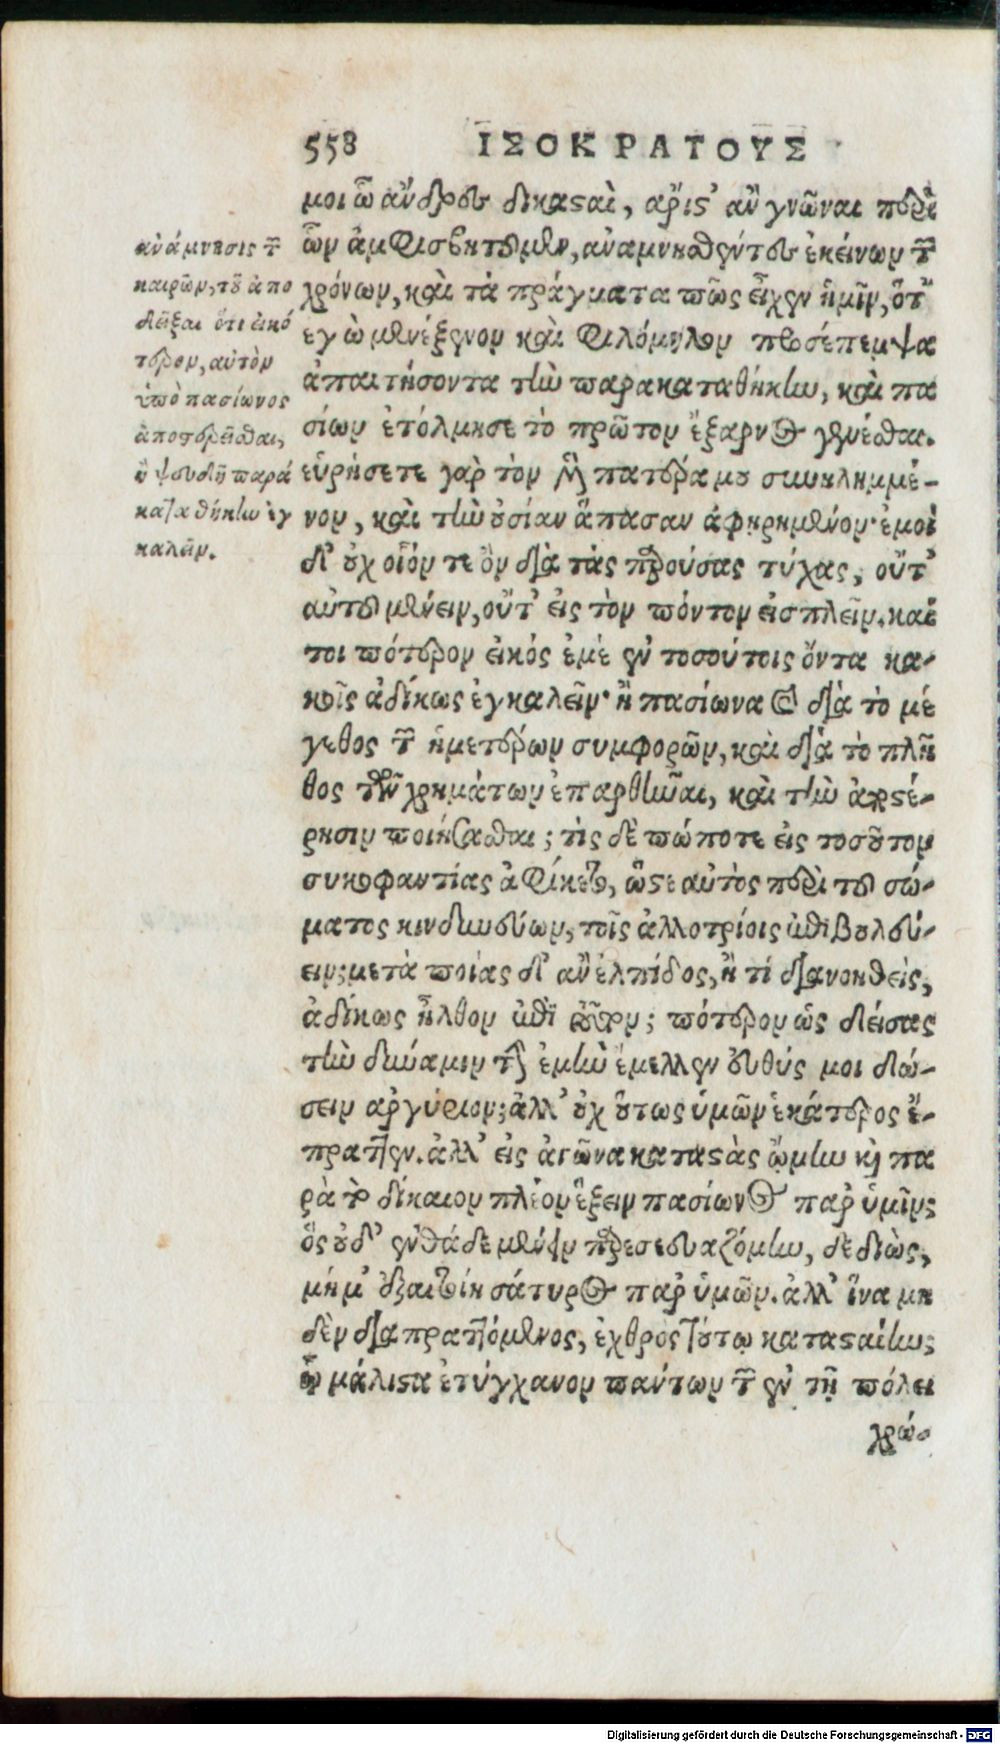 558 ΙΣΟΚΡΑΤΟΥΣ
μοι ὦ ἄνδρες δικασαὶ, ἄριστ' ἂν γνῶναι περὶ
ὧν ἀμφισβητοῦμεν, ἀναμνησθέντες ἐκείνων τῶν
χρόνων, καὶ τὰ πράγματα πῶς εἶχεν ἡμῖν, ὅτ'
ἐγὼ μενέξενον καὶ φιλόμηλον προσέπεμψα
ἀπαιτήσοντα τὴν παρακαταθήκην, καὶ πα
σίων ἐτόλμησε τὸ πρῶτον ἔξαρνος γενέσθαι.
εὑρήσετε γὰρ τὸν μὲν πατέρα μου συνειλημμέ-
νον, καὶ τὴν οὐσίαν ἅπασαν ἀφῃρημένον· ἐμοὶ
δ' οὐχ οἷόν τε ὂν διὰ τὰς παρούσας τύχας, οὔτ'
αὐτοῦ μένειν, οὔτ' εἰς τὸν πόντον εἰσπλεῖν. καί
τοι πότερον εἰκός ἐμὲ ἐν τοσούτοις ὄντα κα-
κοῖς ἀδίκως ἐγκαλεῖν· ἢ πασίωνα καὶ διὰ τὸ μέ
γεθος τῶν ἡμετέρων συμφορῶν, καὶ διὰ τὸ πλῆ
θος τῶν χρημάτων ἐπαρθῆναι, καὶ τὴν ἀποστέ-
ρησιν ποιήσασθαι; τὶς δὲ πώποτε εἰς τοσοῦτον
συκοφαντίας ἀφίκετο, ὥστε αὐτὸς περὶ τοῦ σώ-
ματος κινδυνεύων, τοῖς ἀλλοτρίοις ἐπιβουλεύ-
ειν; μετὰ ποίας δ' ἂν ἐλπίδος, ἢ τί διανοηθεὶς,
ἀδίκως ἦλθον ἐπὶ τοῦτον; πότερον ὡς δείσας
τὴν δύναμιν τὴν ἐμὴν ἔμελλεν εὐθύς μοι δώ-
σειν ἀργύριον; ἀλλ' οὐχ οὕτως ὑμῶν ἑκάτερος ἔ-
πραττεν. ἀλλ' εἰς ἀγῶνα καταστὰς ᾤμην καὶ πα
ρὰ τὸ δίκαιον πλέον ἕξειν πασίωνος παρ' ὑμῖν;
ὃς οὐδ' ἐνθάδε μένειν παρεσκευαζόμην, δεδιὼς,
μή μ' ἐξαιτοίη σάτυρος παρ' ὑμῶν. ἀλλ' ἵνα μη
δὲν διαπραττόμενος, ἐχθρὸς τούτῳ κατασταίην;
ᾧ μάλιστα ἐτύγχανον πάντων τῶν ἐν τῇ πόλει
χρώ-
ἀνάμνησις τῶν
καιρῶν, τοῦ ἀπο
δεῖξαι ὅτι εἰκό
τερον, αὐτὸν
ὑπὸ πασίωνος
ἀποστερεῖσθαι,
ἢ ψευδῆ παρα
καταθήκην ἐγ
καλεῖν.
Digitalisierung gefördert durch die Deutsche Forschungsgemeinschaft - DFG